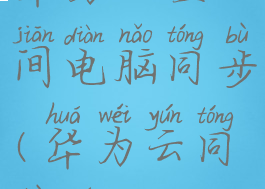 jiān diàn nǎo tóng bù
间电脑同步
huá wéi yún tóng
(华为云同